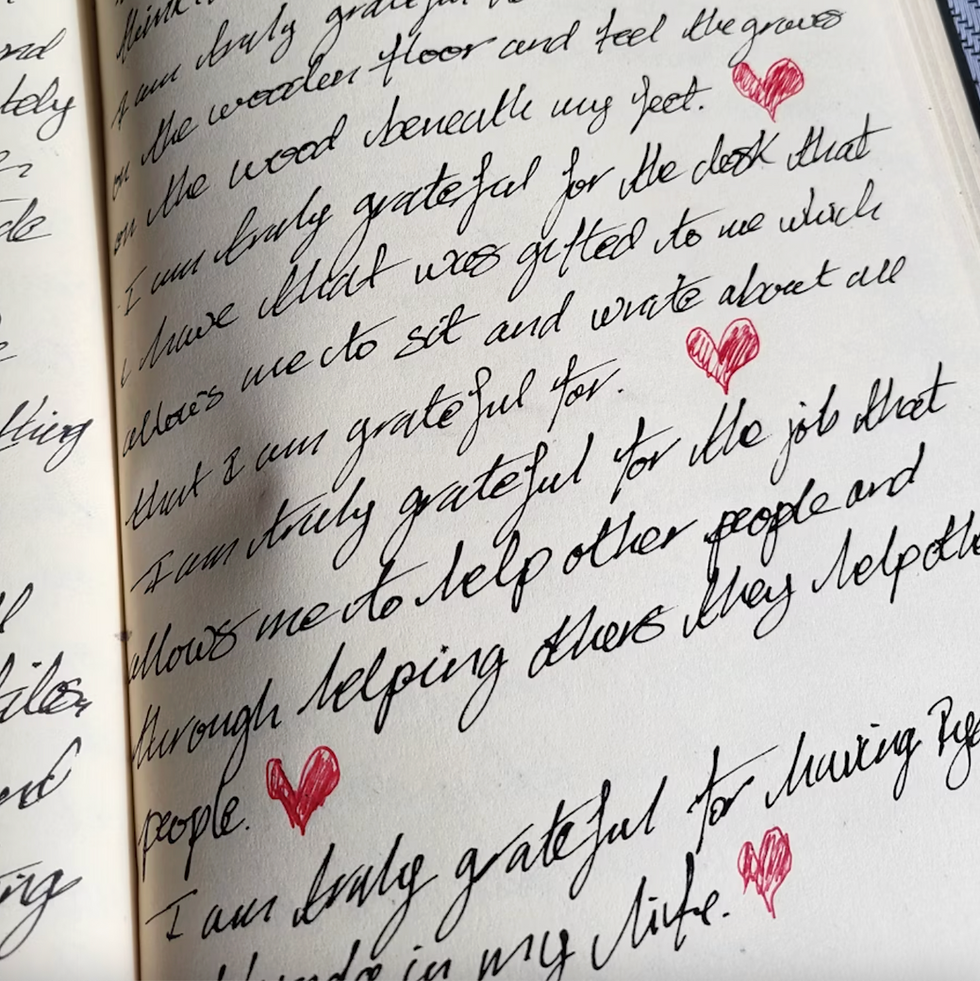 nd
tely
de
thing
ing
I am truly grateful
on the wooden floor and feel the groves
on the wood beneath my feet.
I am truly grateful for the desk that
i have that was gifted to me which
allows me to sit and write about all
that I am grateful for.
I am truly grateful for the job that
allows me to help other people and
through helping thers they help othe
people.
I am truly grateful for having
in my life.